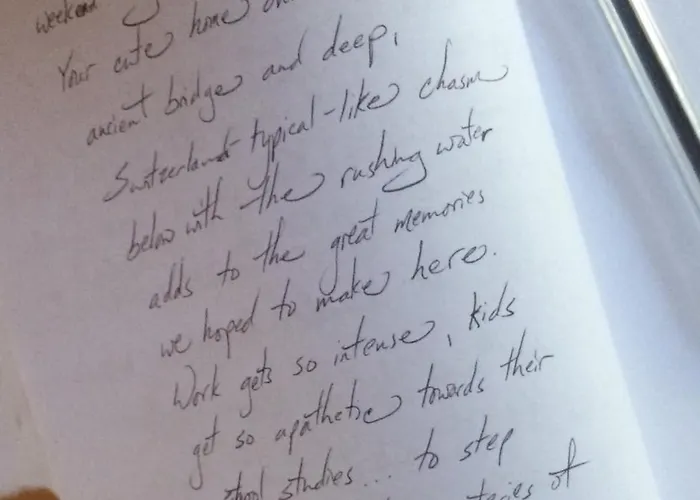 weekend
Your cute home
ancient bridge and deep,
Switzerland typical-like chasm
below with the rushing water
adds to the great memories
we hoped to make here.
Work gets so intense, kids
get so apathetic towards their
school studies... to step
of